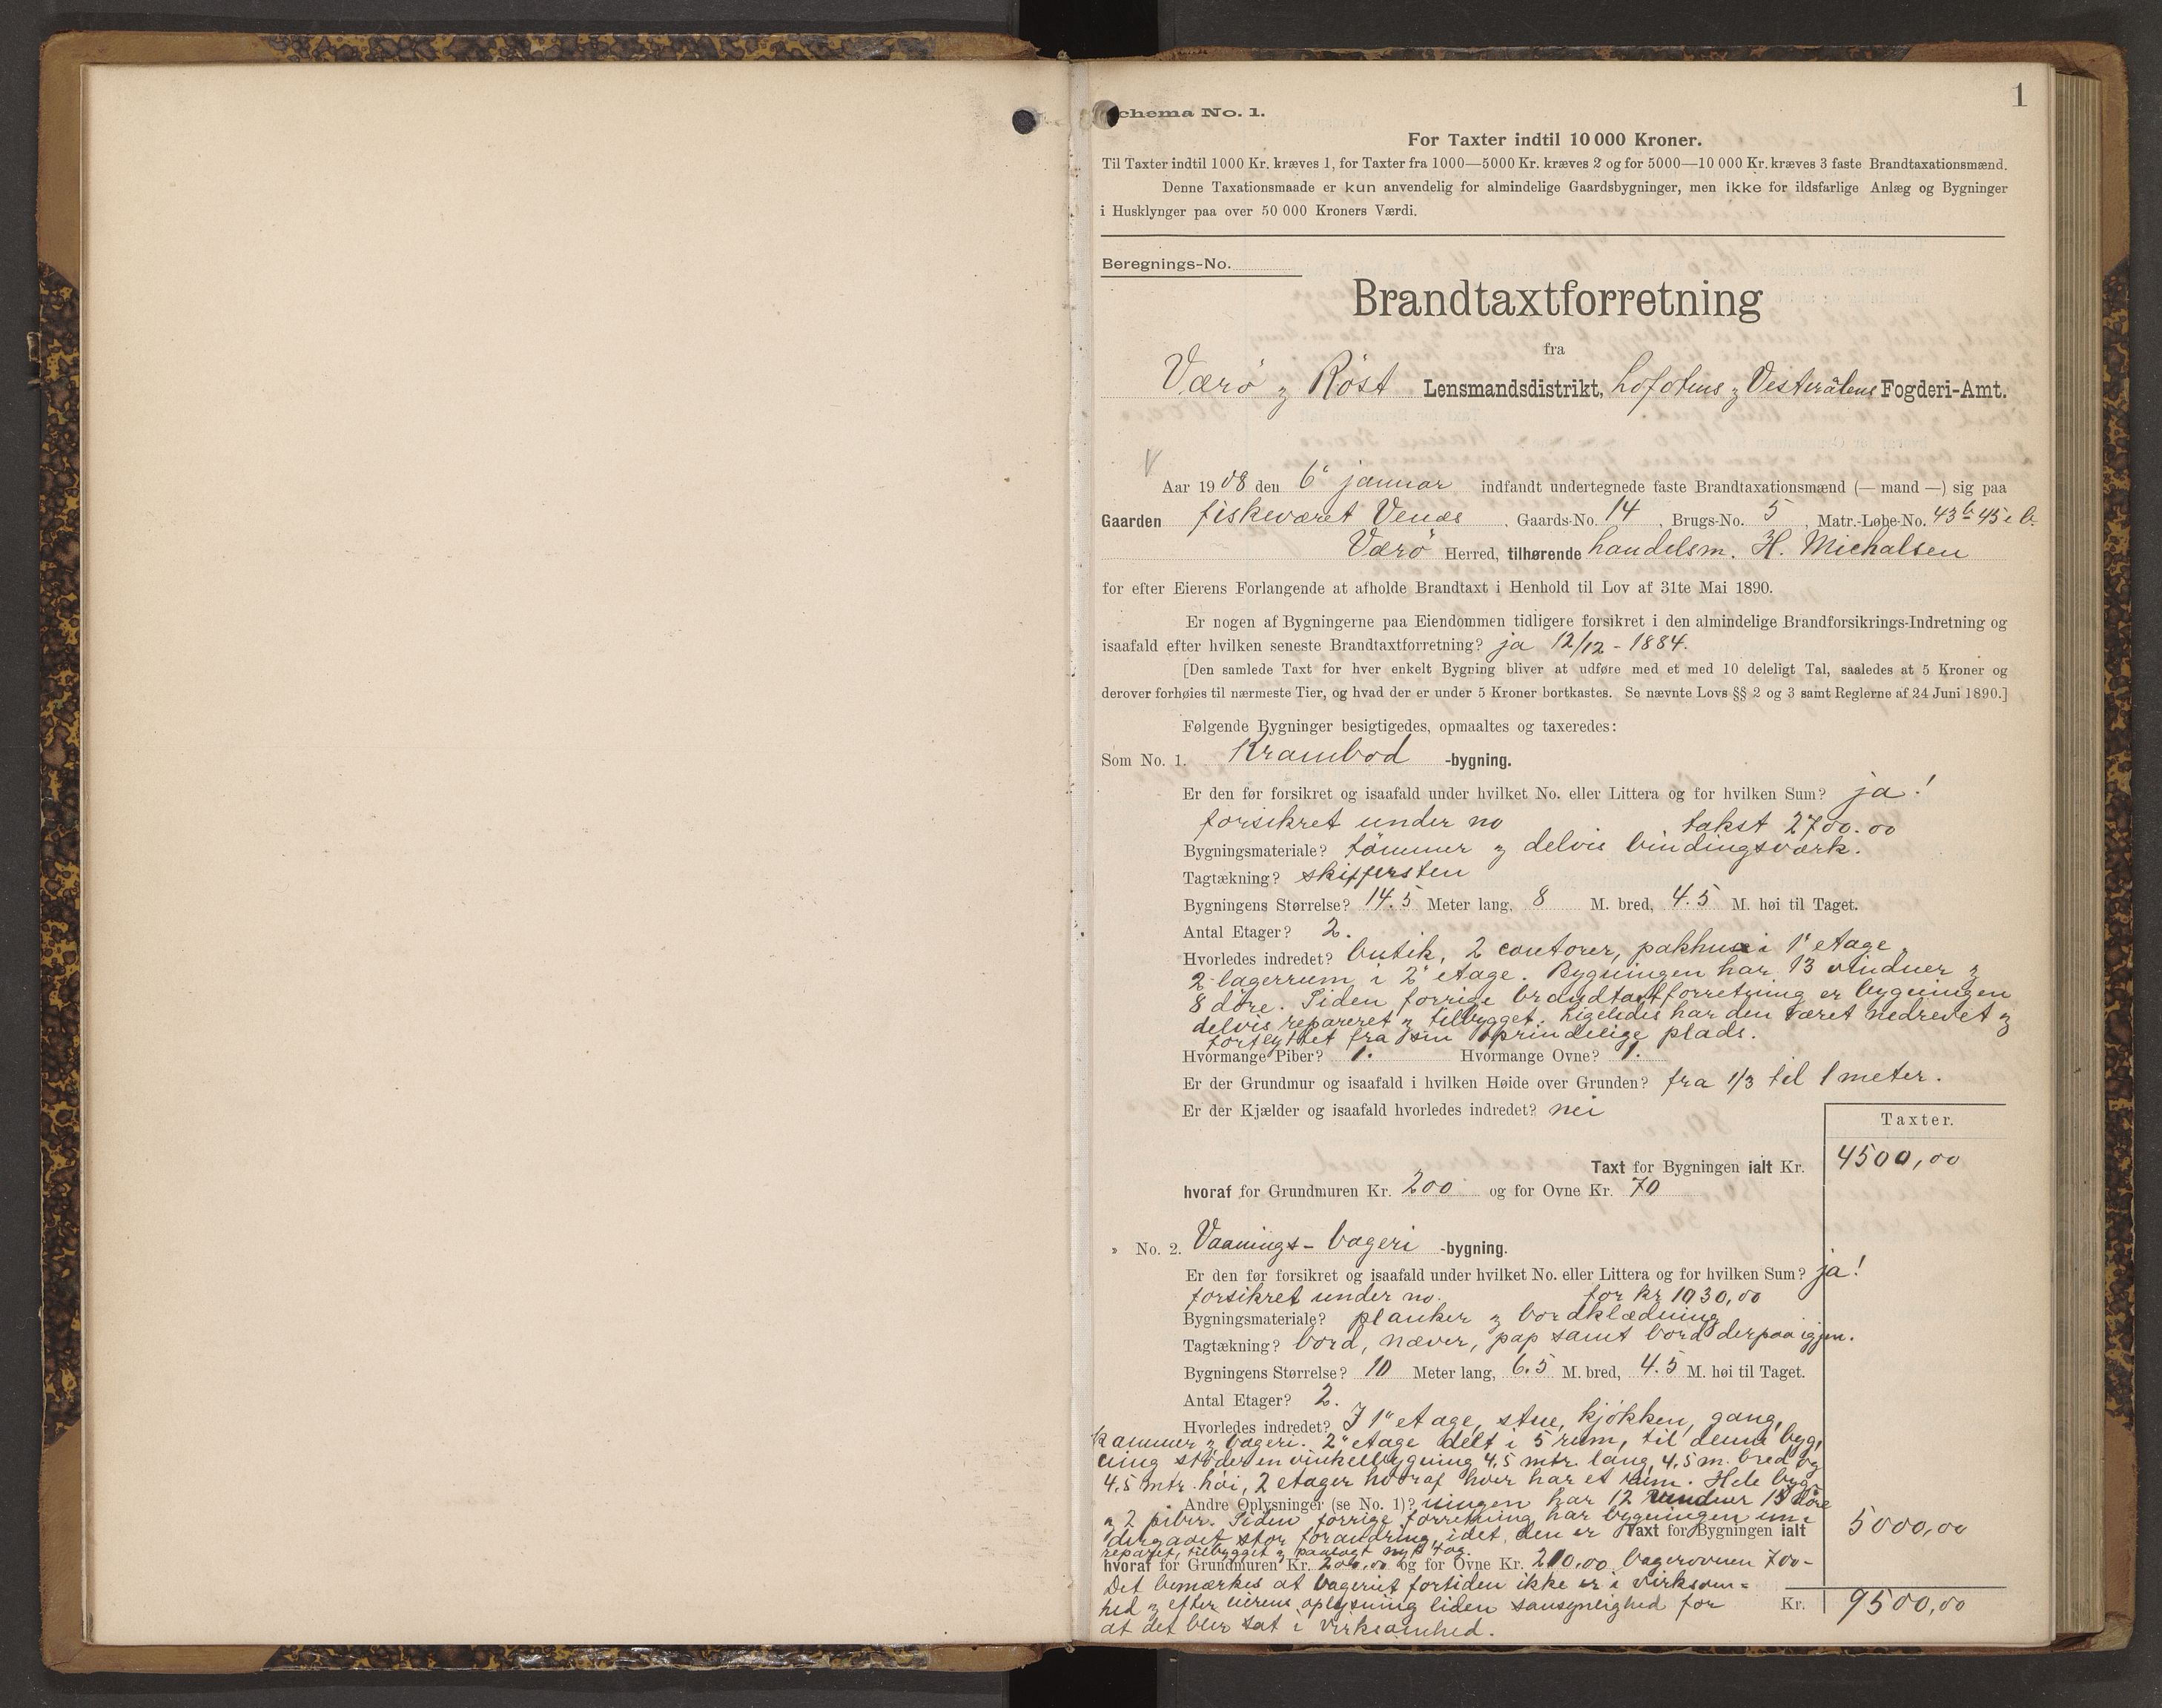 1
chema No. 1.
For Taxter indtil 10 000 Kroner.
Til Taxter indtil 1000 Kr. kræves 1, for Taxter fra 1000—5000 Kr. kræves 2 og for 5000—10 000 Kr. kræves 3 faste Brandtaxationsmænd.
Denne Taxationsmaade er kun anvendelig for almindelige Gaardsbygninger, men ikke for ildsfarlige Anlæg og Bygninger
i Husklynger paa over 50 000 Kroners Værdi.
Beregnings-No.
Brandtaxtforretning
fra
Værö og Röst Lensmandsdistrikt, Lofotens og Vesterålens Fogderi-Amt.
Aar 1908 den 6' januar indfandt undertegnede faste Brandtaxationsmænd (— mand —) sig paa
Gaarden fiskeværet Venæs, Gaards-No. 14, Brugs-No. 5, Matr.-Løbe-No. 43b 45e b.
Værö Herred, tilhørende handelsm. H. Michalsen
for efter Eierens Forlangende at afholde Brandtaxt i Henhold til Lov af 31te Mai 1890.
Er nogen af Bygningerne paa Eiendommen tidligere forsikret i den almindelige Brandforsikrings-Indretning og
isaafald efter hvilken seneste Brandtaxtforretning? ja 12/12 - 1884.
[Den samlede Taxt for hver enkelt Bygning bliver at udføre med et med 10 deleligt Tal, saaledes at 5 Kroner og
derover forhøies til nærmeste Tier, og hvad der er under 5 Kroner bortkastes. Se nævnte Lovs §§ 2 og 3 samt Reglerne af 24 Juni 1890.]
Følgende Bygninger besigtigedes, opmaaltes og taxeredes:
Som No. 1. Krambod -bygning.
Er den før forsikret og isaafald under hvilket No. eller Littera og for hvilken Sum? ja!
forsikret under no takst 2700.00
Bygningsmateriale? tömmer og delvis bindingsværk.
Tagtækning? skiffersten
Bygningens Størrelse? 14.5 Meter lang, 8 M. bred, 4.5 M. høi til Taget.
Antal Etager? 2.
Hvorledes indredet? butik, 2 contorer, pakhus i 1' etage,
2 lagerrum i 2' etage. Bygningen har 13 vinduer og
8 döre. Siden forrige brandtaxtforretning er bygningen
delvis repareret og tilbygget. Ligeledes har den været nedrevet og
forflyttet fra sin oprindelige plads.
Hvormange Piber? 1. Hvormange Ovne? 1.
Er der Grundmur og isaafald i hvilken Høide over Grunden? fra 1/3 til 1 meter.
Er der Kjælder og isaafald hvorledes indredet? nei
Taxter.
Taxt for Bygningen ialt Kr. 4500,00
hvoraf for Grundmuren Kr. 200 og for Ovne Kr. 70
" No. 2. Vaanings- bageri -bygning.
Er den før forsikret og isaafald under hvilket No. eller Littera og for hvilken Sum? ja!
forsikret under no. for kr 1930,00
Bygningsmateriale? planker og bordklædning
Tagtækning? bord, næver, pap samt bord derpaa igjen.
Bygningens Størrelse? 10 Meter lang, 6.5 M. bred, 4.5 M. høi til Taget.
Antal Etager? 2.
Hvorledes indredet? I 1' etage, stue, kjökken, gang,
kammer og bageri. 2' etage delt i 5 rum, til denne byg,
ning stöder en vinkelbygning 4,5 mtr. lang, 4,5 m. bred og
4,5 mtr. höi, 2 etager hvoraf hver har et rum. Hele byg-
Andre Oplysninger (se No. 1)? ningen har 12 vinduer 15 döre
og 2 piber. Siden forrige forretning har bygningen un-
dergaaet stor forandring, idet den er Taxt for Bygningen ialt 5000,00
reparert, tilbygget og paalagt nyt tag.
hvoraf for Grundmuren Kr. 200.00 og for Ovne Kr. 210.00 bagerovnen 700-
Det bemærkes at bageriet fortiden ikke er i virksom-
hed og efter eierens oplysning liden sansynlighed for Kr. 9500,00
at det blir sat i virksomhed.